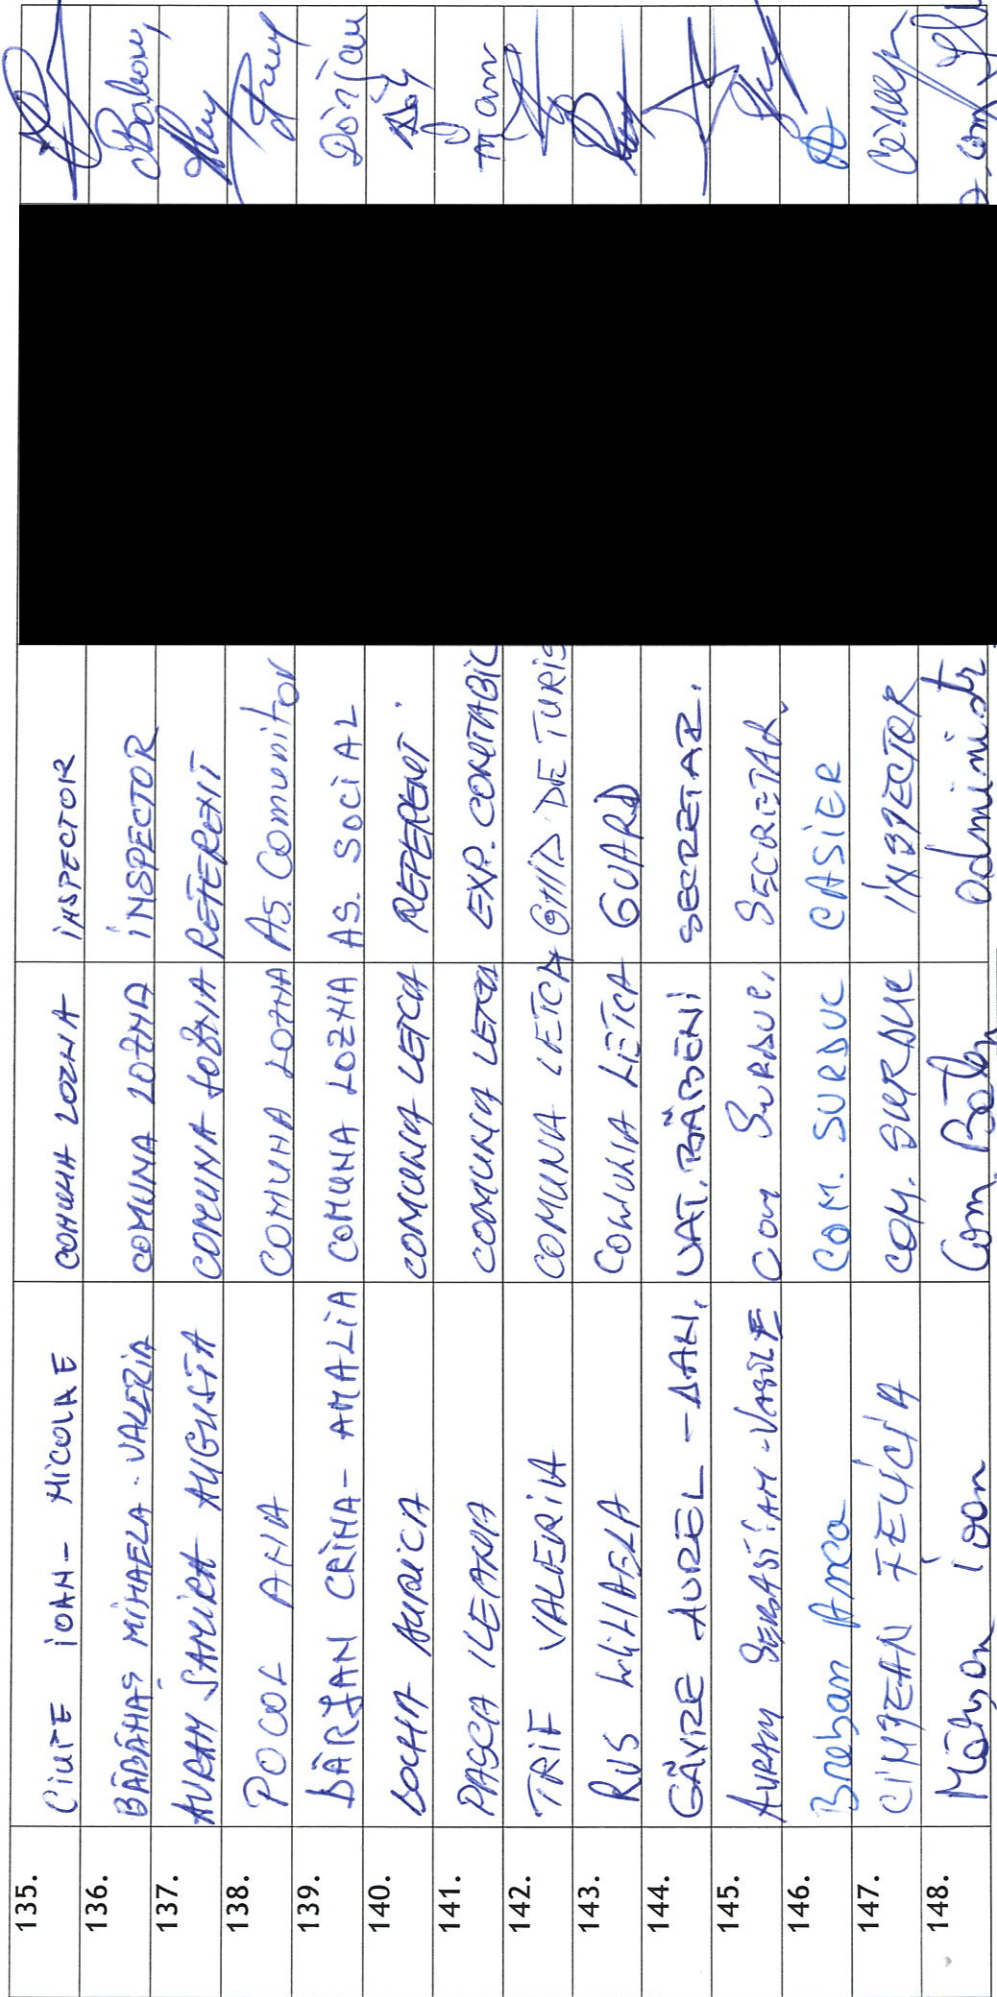 135. CIUTE IOAN - NICOLAE COMUNA LOZNA INSPECTOR
136. BĂBĂHAS MIHAELA - VALERIA COMUNA LOZNA INSPECTOR
137. AVRAM SAMIRA AUGUSTA COMUNA LOZNA REFERENT
138. POCOL ANA COMUNA LOZNA AS. Comunitar
139. BÂRJAN CRINA - AMALIA COMUNA LOZNA AS. SOCIAL
140. AURICA COMUNA LETCA REFERENT
141. PAȘCA ILEANA COMUNA LETCA EXP. CONTABIL
142. TRIF VALERIA COMUNA LETCA GHID DE TURIS
143. RUS COMUNA LETCA GUARD
144. GĂVRE AUREL - DAN. UAT. BĂBENI SECRETAR.
145. AVRAM SEBASTIAN - VASILE Com SURDUC. SECRETAR.
146. Breban Anca COM. SURDUC CASIER
147. CIMPEAN FELICIA COM. SURDUC INSPECTOR
148. Ioan Com. administr